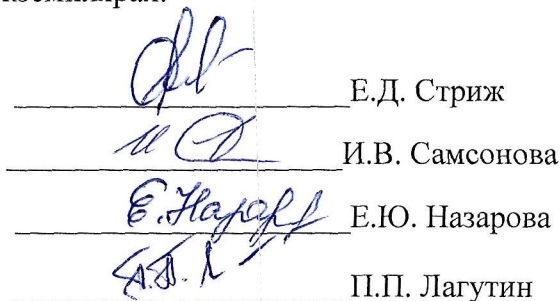 Е.Д. Стриж
И.В. Самсонова
Е. Назар Е.Ю. Назарова
П.П. Лагутин